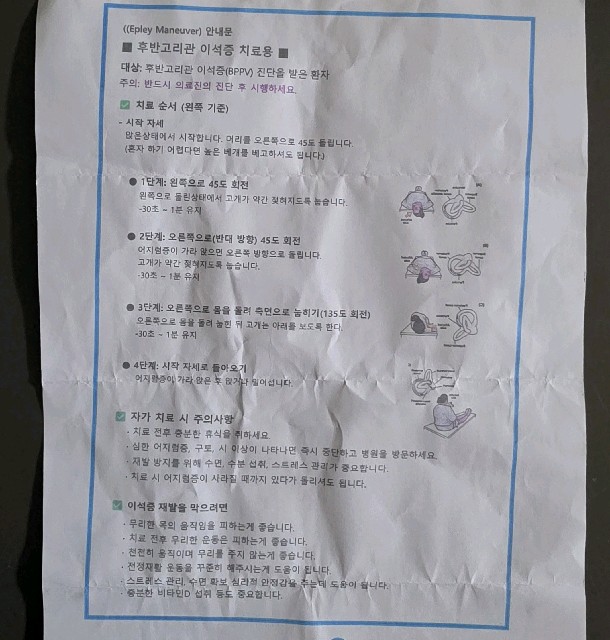 ((Epley Maneuver) 안내문
■ 후반고리관 이석증 치료용 ■
대상: 후반고리관 이석증(BPPV) 진단을 받은 환자
주의: 반드시 의료진의 진단 후 시행하세요.
✅ 치료 순서 (왼쪽 기준)
- 시작 자세
앉은상태에서 시작합니다. 머리를 오른쪽으로 45도 돌립니다.
(혼자 하기 어렵다면 높은 베개를 베고하셔도 됩니다.)
● 1단계: 왼쪽으로 45도 회전
왼쪽으로 돌린상태에서 고개가 약간 젖혀지도록 눕습니다.
-30초 ~ 1분 유지
● 2단계: 오른쪽으로(반대 방향) 45도 회전
어지럼증이 가라 앉으면 오른쪽 방향으로 돌립니다.
고개가 약간 젖혀지도록 눕습니다.
-30초 ~ 1분 유지
● 3단계: 오른쪽으로 몸을 돌려 측면으로 눕히기(135도 회전)
오른쪽으로 몸을 돌려 눕힌 뒤 고개는 아래를 보도록 한다.
-30초 ~ 1분 유지
● 4단계: 시작 자세로 돌아오기
어지럼증이 가라 앉은 후 앉거나 일어섭니다.
✅ 자가 치료 시 주의사항
· 치료 전후 충분한 휴식을 취하세요.
· 심한 어지럼증, 구토, 시 이상이 나타나면 즉시 중단하고 병원을 방문하세요.
· 재발 방지를 위해 수면, 수분 섭취, 스트레스 관리가 중요합니다.
· 치료 시 어지럼증이 사라질 때까지 있다가 돌리셔도 됩니다.
✅ 이석증 재발을 막으려면
· 무리한 목의 움직임을 피하는게 좋습니다.
· 치료 전후 무리한 운동은 피하는게 좋습니다.
· 천천히 움직이며 무리를 주지 않는게 좋습니다.
· 전정재활 운동을 꾸준히 해주시는게 도움이 됩니다.
· 스트레스 관리, 수면 확보 심리적 안정감을 주는데 도움이 됩니다.
· 충분한 비타민D 섭취 등도 중요합니다.